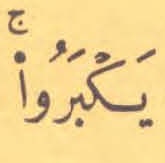 يَكْبَرُوا۟ ۚ